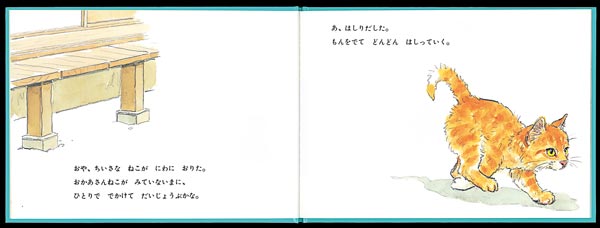 おや、ちいさな　ねこが　にわに　おりた。
おかあさんねこが　みていないまに、
ひとりで　でかけて　だいじょうぶかな。
あ、はしりだした。
もんをでて　どんどん　はしっていく。